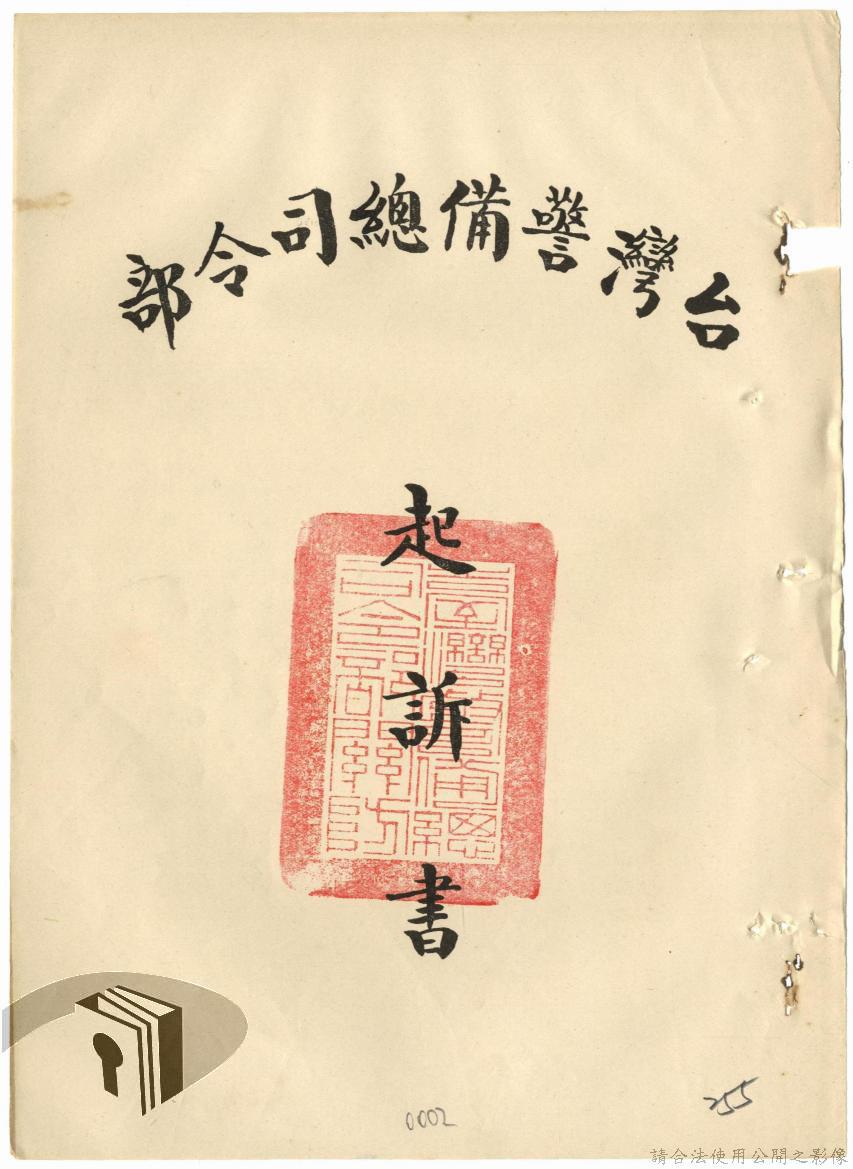 台灣警備總司令部
起訴書
0002
255
請合法使用公開之影像